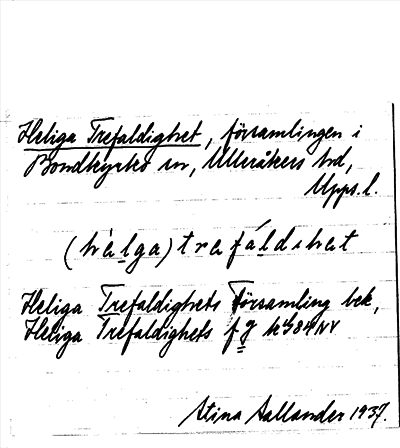 Heliga Trefaldighet, församlingen i
Bondkyrko sn, Ulleråkers hd,
Upps. l.
(hàlga) trefáldihat
Heliga Trefaldighets Församling bek,
Heliga Trefaldighets fg
Stina Sallander 1937.